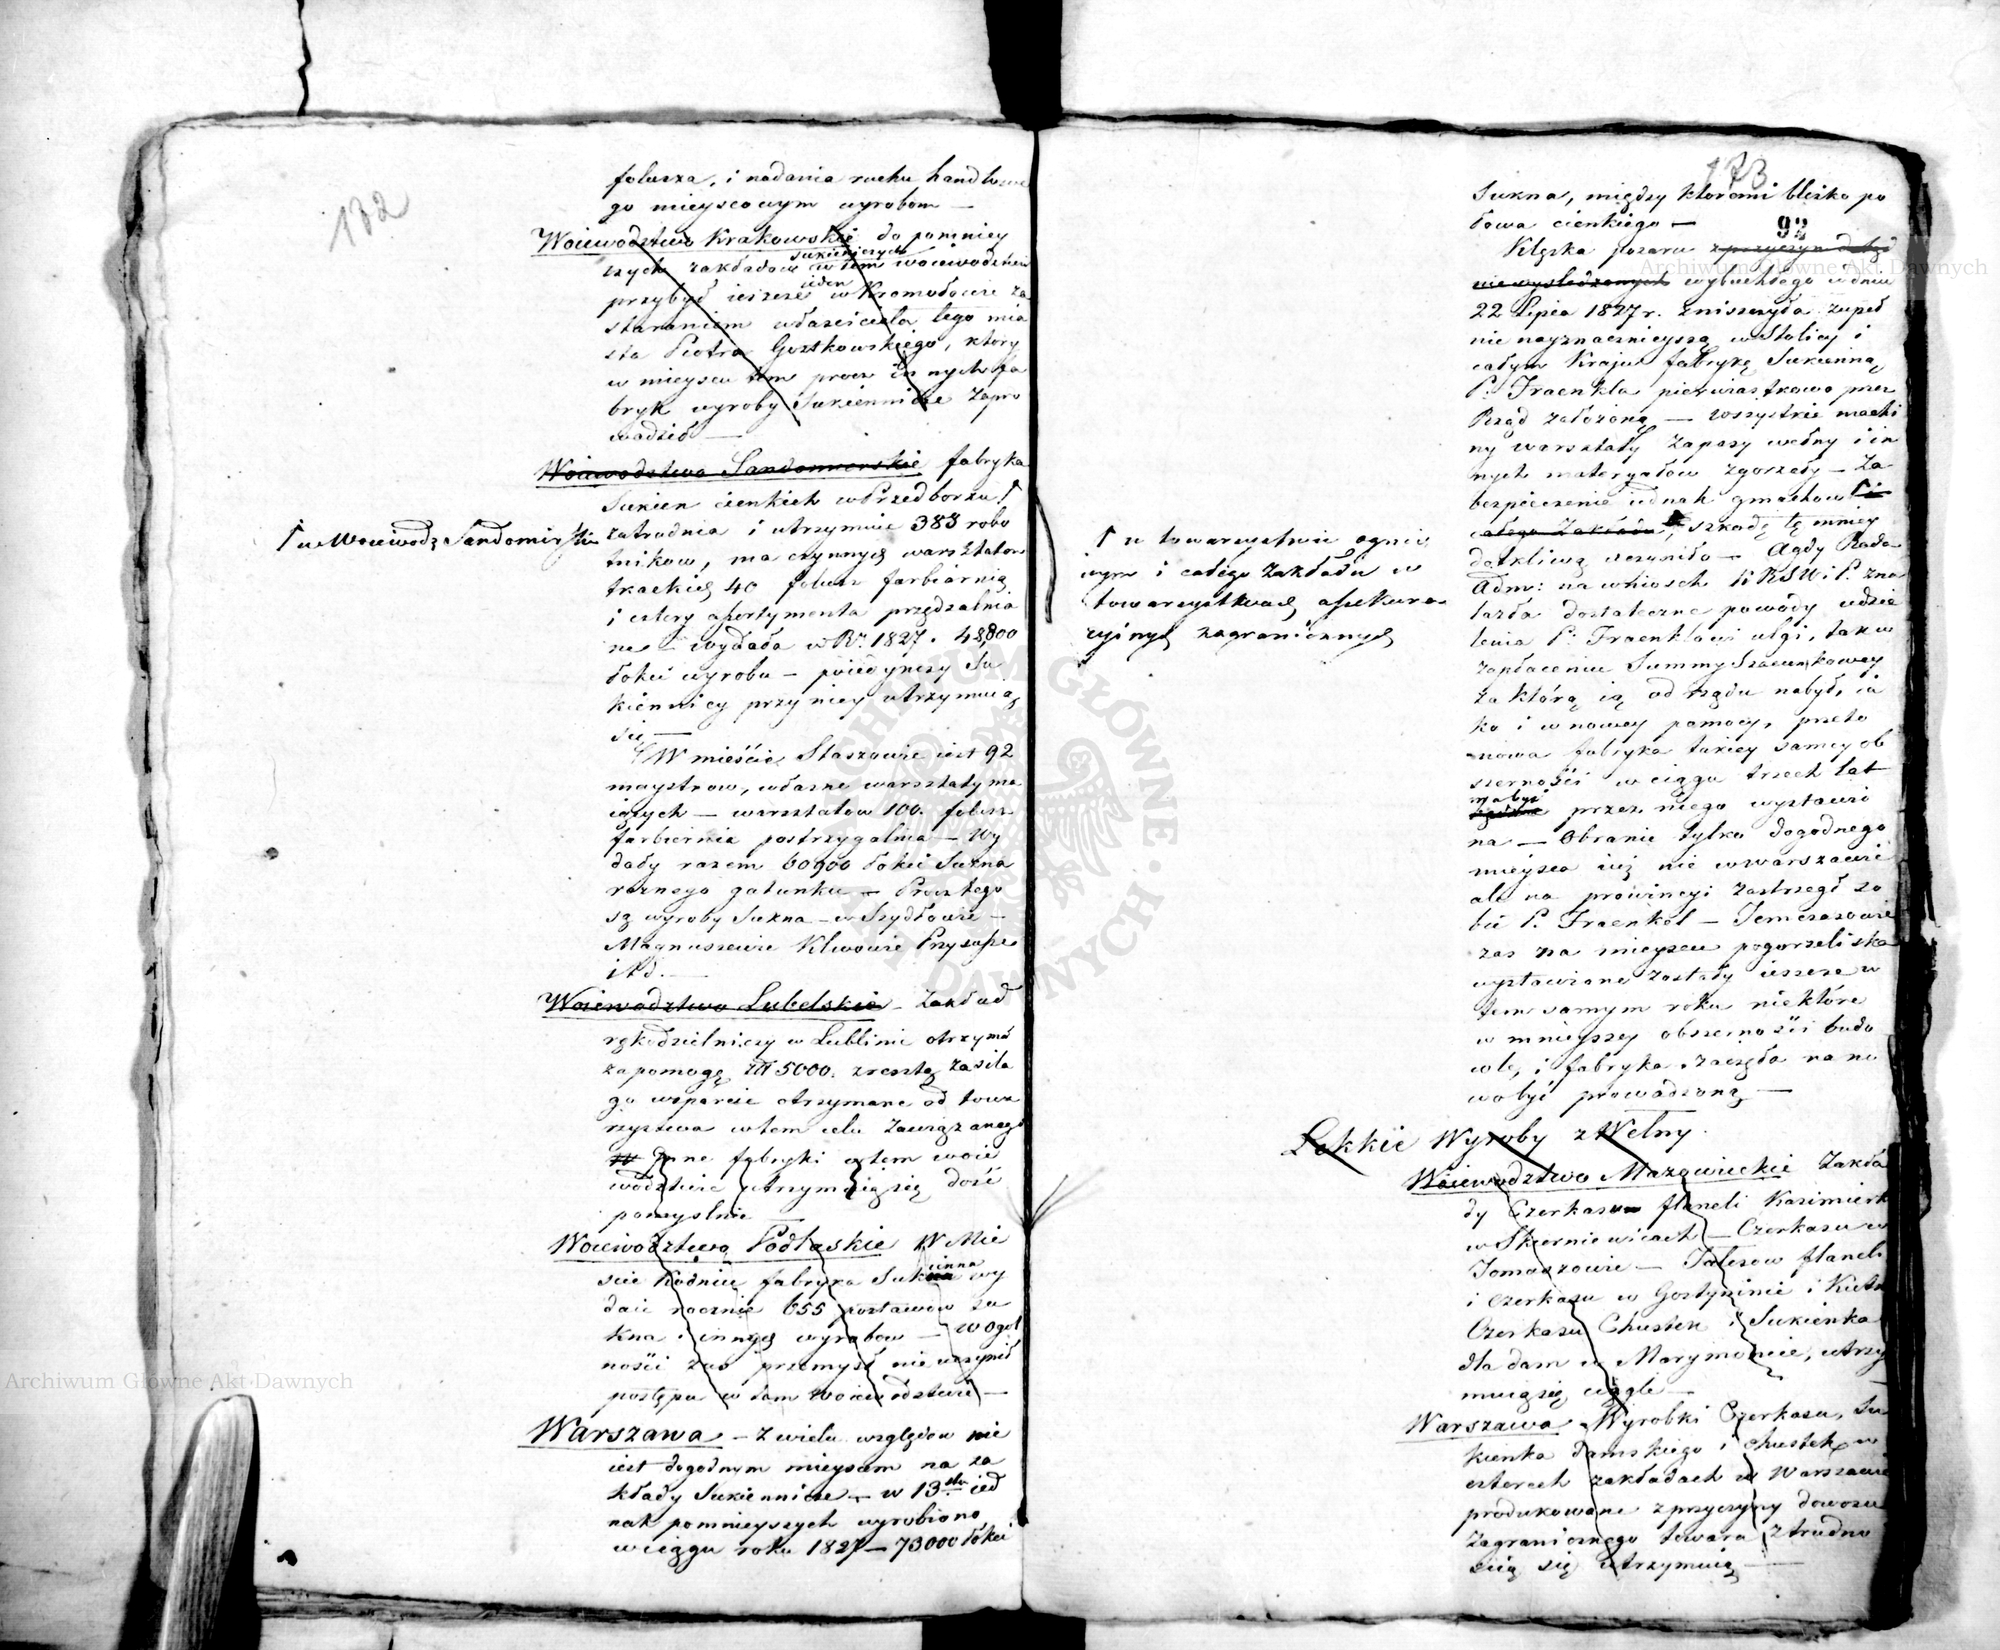 132
folusza, i nadania ruchu handlowe
go mieyscowym wyrobom —
Woiewodztwo Krakowskie do pomniey
szych zakładow sukienniczych w tem woiewodztwie
przybył ieszcze ieden w Kromołowie za
staraniem właściciela tego mia
sta Piotra Gostkowskiego, który
w mieyscu tem procz innych fa
bryk wyroby Sukiennicze zapro
wadził —
Woiewodztwo Sandomierskie fabryka
Sukien cienkich w Przedborzu Γ
Γ w Woiewodz Sandomirskim
zatrudnia i utrzymuie 383 robo
tnikow, ma czynnych warsztatow
tkackich 40 folusz farbiarnią
i cztery assortymenta przędzalnia
ne — wydała w R. 1827. 48,800
łokci wyrobu — poiedynczy Su
kiennicy przy niey utrzymuią
się —
W mieście Staszowie iest 92
maystrow, własne warsztaty ma
iących — warsztatow 100. folusz
farbiernia postrzygalnia — Wy
dały razem 60900 łokci Sukna
roznego gatunku — Procz tego
są wyroby Sukna — w Szydłowie —
Magnuszewie Klwowie Przysusze
i t.d. —
Woiewodztwo Lubelskie — Zakład
rękodzielniczy w Lublinie otrzymał
zapomogę Zł 5000. zresztą zasila
go wsparcie otrzymane od towa
rzystwa w tem celu zawiązanego
W Inne fabryki w tem woie
wodztwie utrzymuią się dość
pomyslnie —
Woiewodztwo Podlaskie W Mie
scie Kodniu fabryka Sukienna wy
daie rocznie 655 postawow su
kna i innych wyrobow — W ogol
ności zas przemysł nie uczynił
postępu w tem woiewodztwie —
Warszawa — Z wielu względow nie
iest dogodnym mieyscem na za
kłady Sukiennicze — w 13stu ied
nak pomnieyszych wyrobiono
w ciągu roku 1827 — 73000 łokci
173
92
Sukna, między któremi blisko po
łowa cienkiego —
Klęska pożaru z przyczyn dotąd
niewysledzonych wybuchłego w dniu
22 Lipca 1827 r. zniszczyła zupeł
nie nayznacznieyszą w Stolicy i
całym Kraju fabrykę Sukienną
P. Fraenkla pierwiastkowo przez
Rząd założoną — wszystkie machi
ny warsztaty zapasy wełny i in
nych materyałow zgorzały — Za
bezpieczenie iednak gmachow Γ i
całego Zakładu, szkodę tę mniey
Γ w towarzystwie ognio
wym i całego zakładu w
towarzystwach asseku­ra
cyjnych zagranicznych
dotkliwą uczyniło — A gdy Rada
Adm: na wniosek KRSW i P. zna
lazła dostateczne powody udzie
lenia P. Fraenklowi ulgi, tak w
zapłaceniu Summy Szacunkowey
za którą ią od rządu nabył, ia
ko i w nowey pomocy, przeto
nowa fabryka takiey samey ob
szerności w ciągu trzech lat
ma być przez niego wystawio
na — Obranie tylko dogodnego
mieysca iuż nie w Warszawie
ale na prowincyi zastrzegł so
bie P. Fraenkel — Tymczasowie
zas na mieyscu pogorzeliska
wystawione zostały ieszcze w
tem samym roku niektóre
w mnieyszey obszerności budo
wle, i fabryka zaczęła na no
wo być prowadzoną —
Lekkie Wyroby z Wełny.
Woiewodztwo Mazowieckie Zakła
dy Czerkasu flaneli Kazimierk
w Skierniewicach — Czerkasu w
Tomaszowie — flaneli
i Czerkasu w Gostyninie i Kutn
Czerkasu Chustek i Sukienka
dla dam w Marymoncie, utrzy
muią się ciągle —
Warszawa Wyrobki Czerkasu, Su
kienka damskiego i chustek w
czterech zakładach w Warszawie
produkowane z przyczyny dowozu
zagranicznego towaru z trudno
ścią się utrzymuią —
Archiwum Główne Akt Dawnych
Archiwum Główne Akt Dawnych
ARCHIWUM GŁÓWNE AKT DAWNYCH